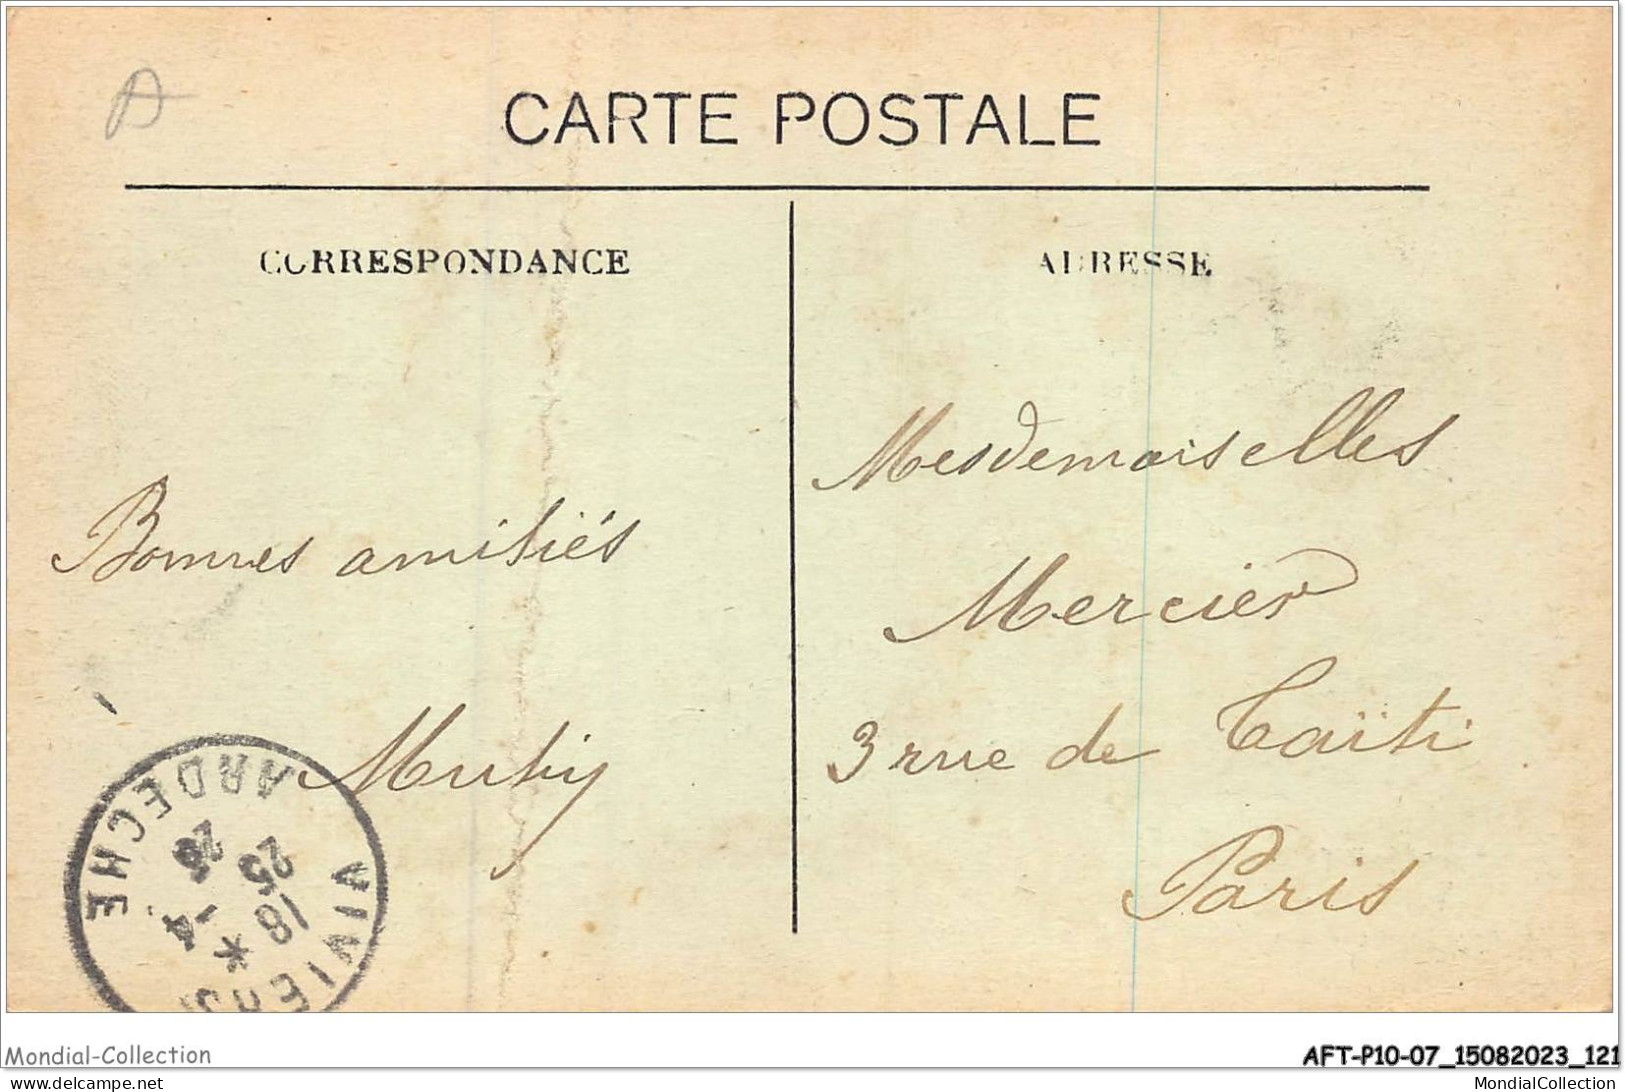 CARTE POSTALE
CORRESPONDANCE
ADRESSE
Bonnes amitiés
Mesdemoiselles
Mercier
3 rue de Taïti
Paris
ARDECHE
18 * 25
-4 26
Mondial-Collection
AFT-P10-07_15082023_121
www.delcampe.net
MondialCollection